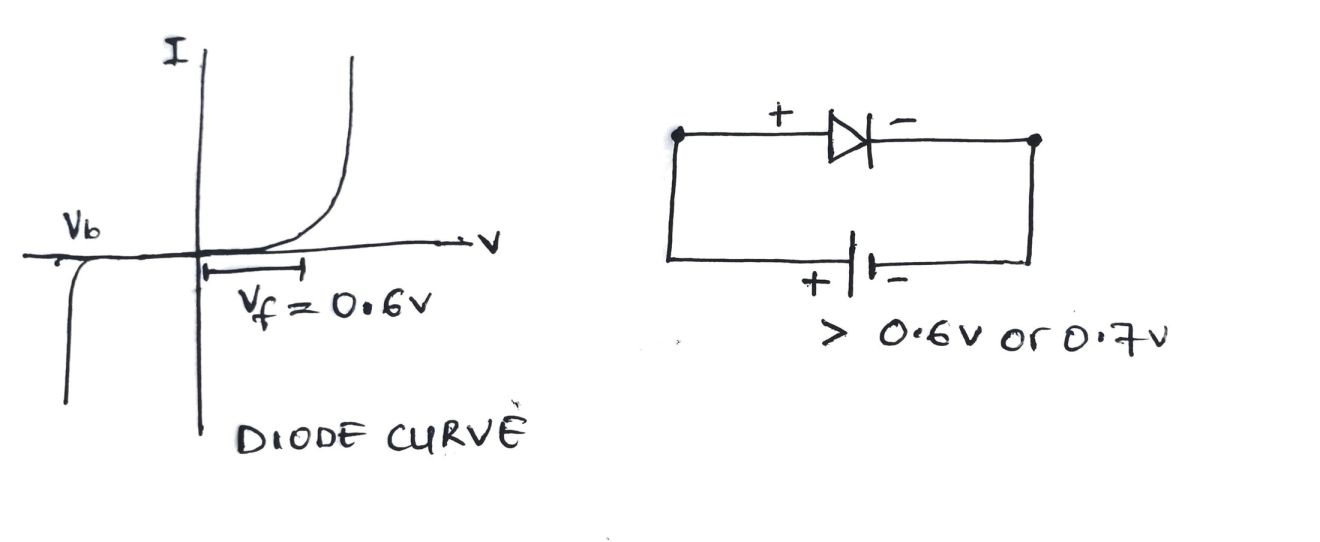 I
Vb
V
Vf = 0.6V
DIODE CURVE
+ -
+ -
> 0.6V or 0.7V